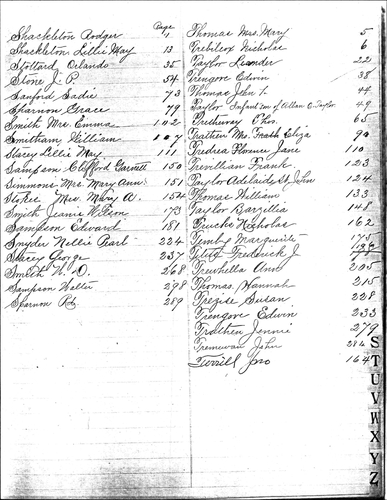 Page
Shackleton Rodger 1
Shackleton Lillie May 13
Stottard Orlando 35
Stone J. P. 54
Sanford Sadie 73
Sparnon Grace 79
Smith Mrs Emma 102
Smitham William 107
Stacey Lillie May 111
Sampson Clifford Garnett 150
Simmons Mrs Mary Ann 151
Mrs Mary A. 154
Smith Jeanie Wilson 173
Sampson Edward 181
Snyder Nellie Pearl 224
Stacey George 237
Smith W. O. 268
Sampson Walter 298
Sparnon Robt 289
Thomas Mrs. Mary 5
Trebilcox Nicholas 6
Taylor Leander 22
Trengove Edwin 38
Thomas John t. 44
Taylor Infant son of Allan O Taylor 49
Trethewey Thos. 65
Trathen Mrs. Eliza 90
Tredrea Florence Jane 110
Trevillian Frank 123
Taylor Adelaide St. John 124
Thomas William 133
Taylor Barzillia 148
Nicholas 162
Marguerite 175
Frederick J
Trewhella Ann 205
Thomas. Hannah 215
Trezise Susan 228
Trengove Edwin 233
Trathen Jennie 279
Tremewan John 286
Terrill Jno 164
S
T
U
V
W
X
Y
Z